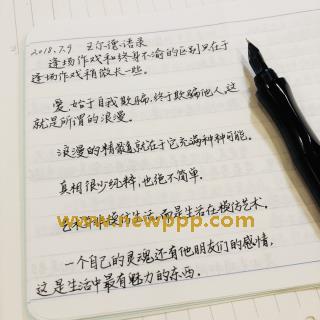 2018.7.9 王尔德语录
逢场作戏和终身不渝的区别只在于
逢场作戏稍微长一些。
爱,始于自我欺骗,终于欺骗他人,这
就是所谓的浪漫。
浪漫的精髓就在于它充满种种可能。
真相很少纯粹,也绝不简单。
www.newppp.com
艺术并非模仿生活,而是生活在模仿艺术。
一个自己的灵魂还有他朋友们的感情,
这是生活中最有魅力的东西。